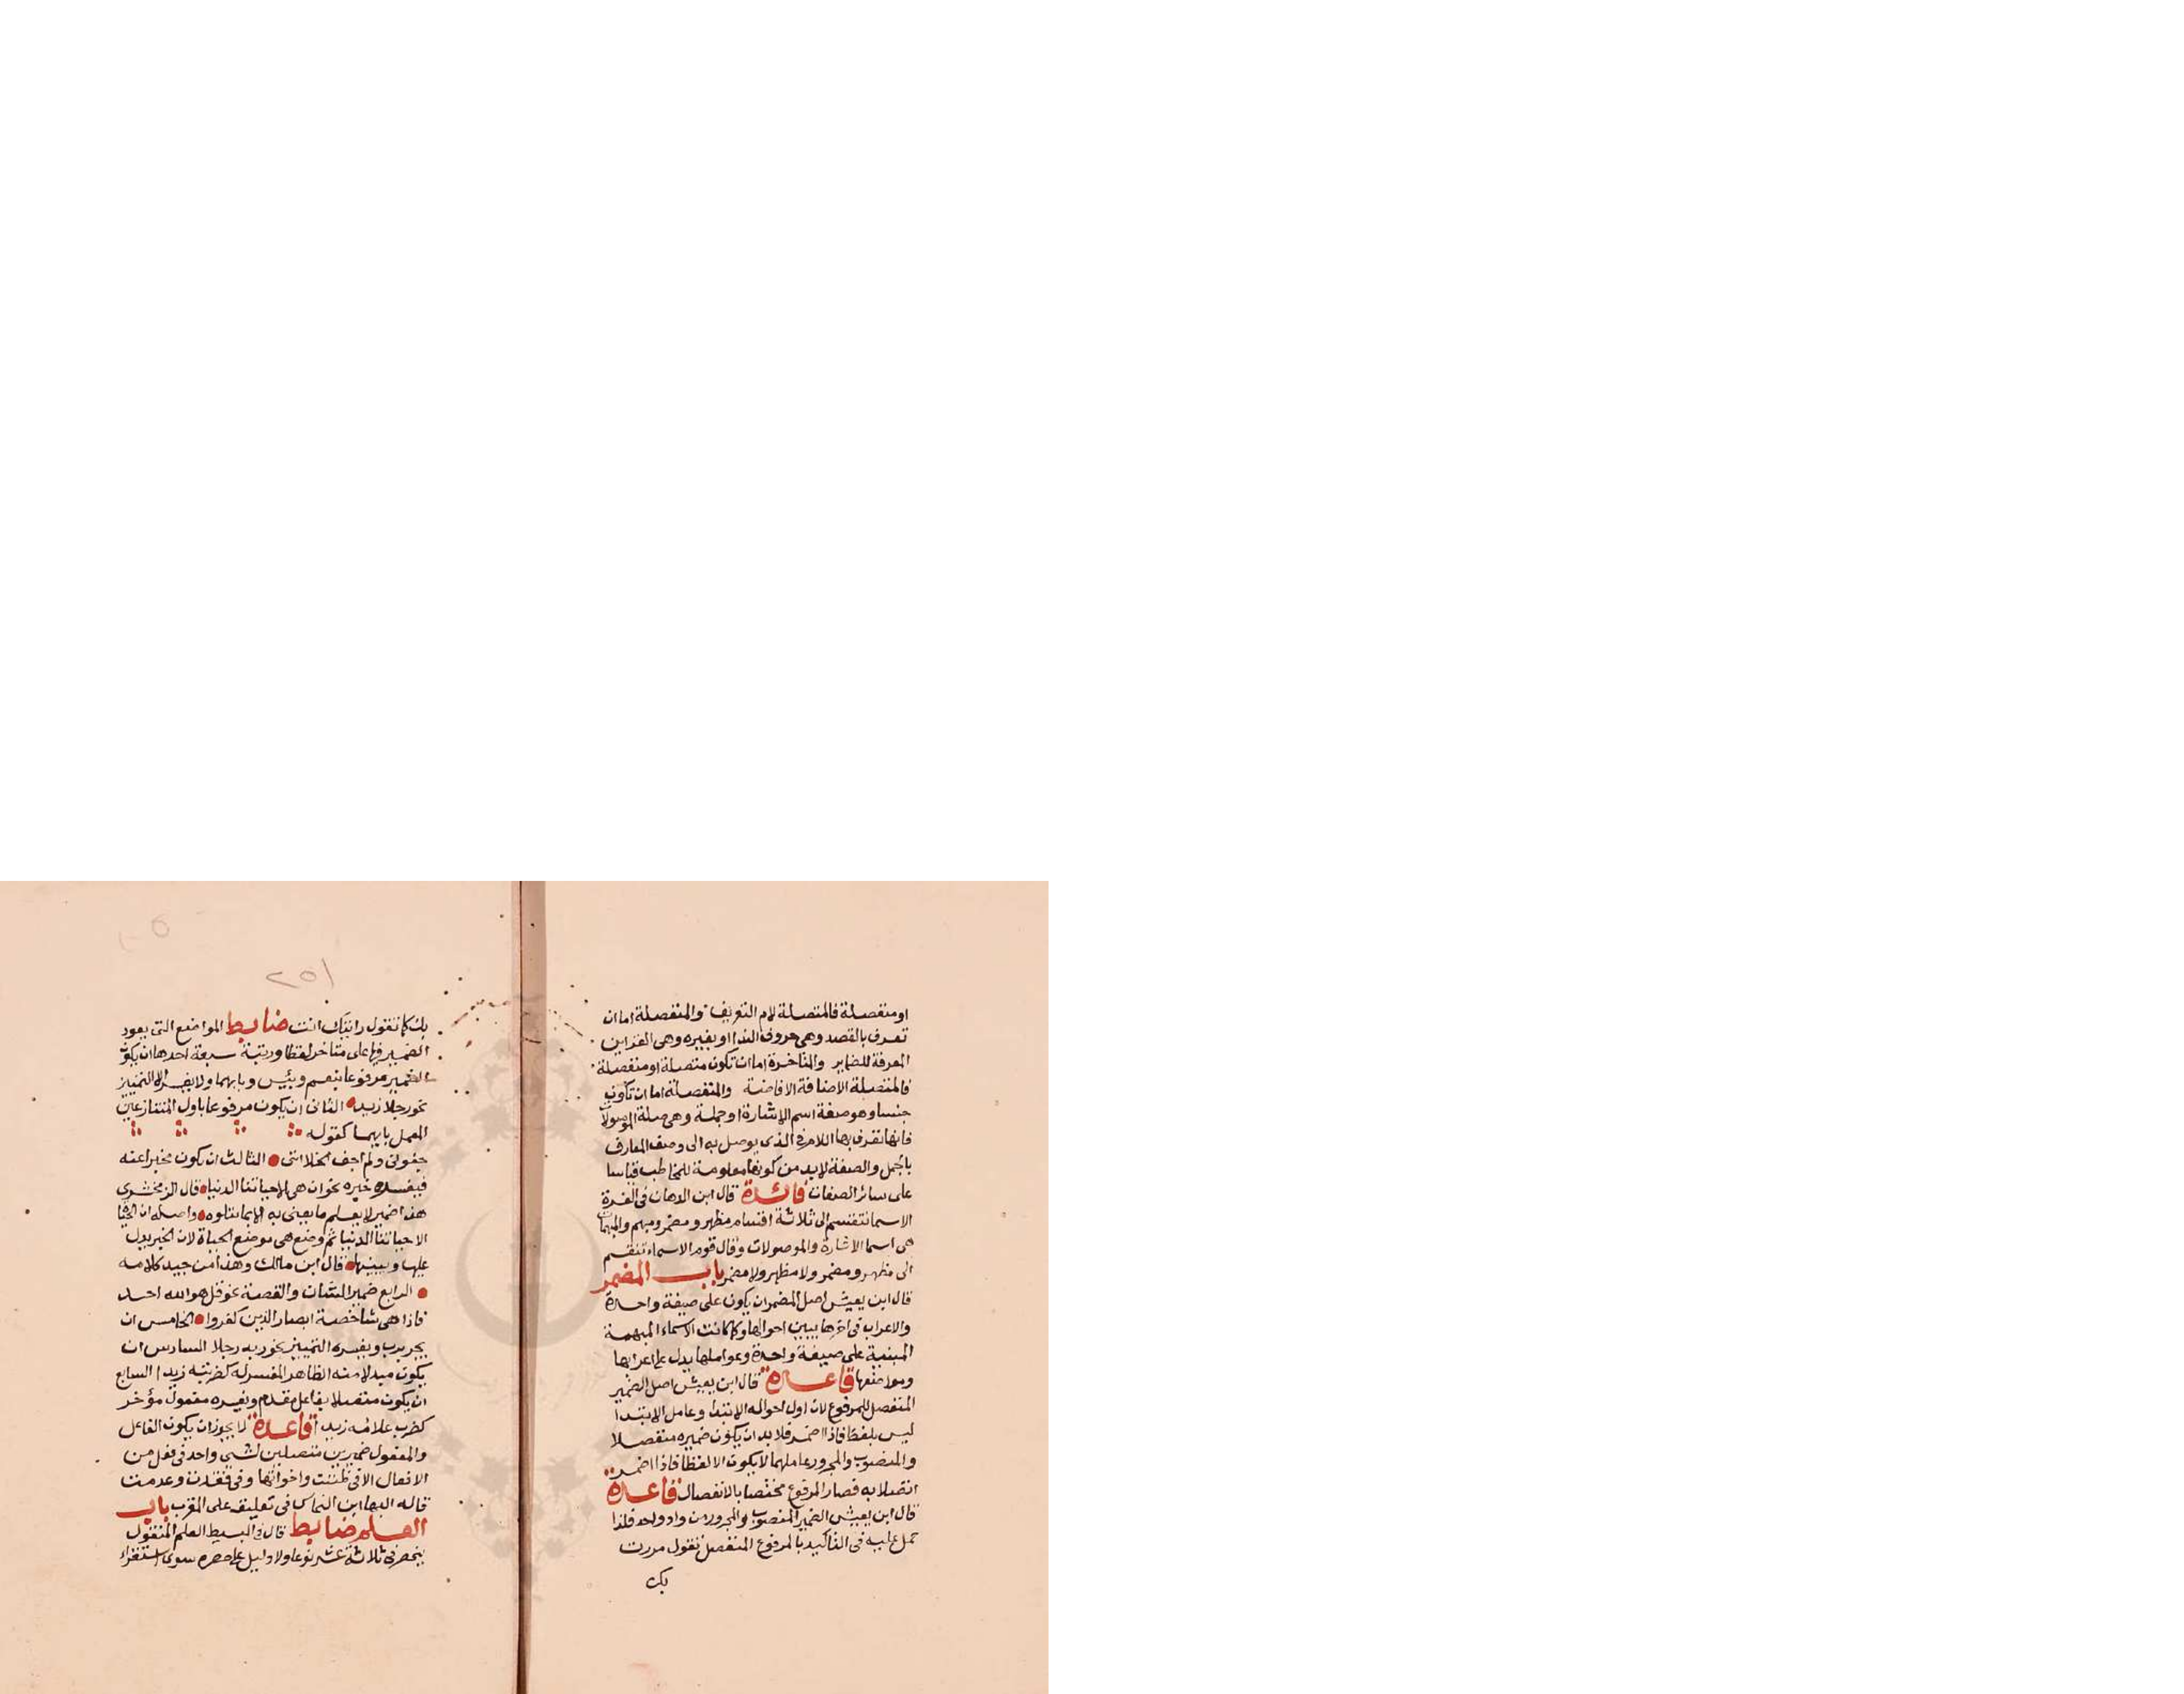 او منفصلة فالمتصلة لام التعريف والمنفصلة اما ان
تعرف بالقصد وهي حروف الندا او بغيره وهي القراين
المعرفة للضماير والمتاخرة اما ان تكون متصلة او منفصلة
فالمتصلة الاضافة الاضافة والمنفصلة اما ان تكون
جنسا وهو صفة اسم الاشارة او جملة وهي صلة الموصولات
فانها تعرف بها اللام في الذى يوصل به الى وصف المعارف
بالجمل والصفة لابد من كونها معلومة للمخاطب قياسا
على سائر الصفات فائدة قال ابن الدهان فى الغرة
الاسما تنقسم الى ثلاثة اقسام مظهر ومضمر ومبهم والمبهمات
هى اسما الاشارة والموصولات وقال قوم الاسماء تنقسم
الى مظهر ومضمر ولا مظهر ولا مضمر باب المضمر
قال ابن يعيش اصل المضمر ان يكون على صيغة واحدة
والاعراب فى اخرها يبين احوالها وكما كانت الاسماء المبهمة
المبنية على صيغة واحدة وعواملها يدل على اعرابها
ومواضعها قاعدة قال ابن يعيش اصل الضمير
المنفصل للمرفوع لان اول احواله الابتدا وعامل الابتدا
ليس بلفظ فاذا اضمر فلا بد ان يكون ضميره منفصلا
والمنصوب والمجرور عاملهما لا يكون الا لفظا فاذا اضمر
اتصلا به فصار المرفوع مختصا بالانفصال قاعدة
قال ابن يعيش الضمير المنصوب والمجرور من واد واحد فلذا
حمل عليه فى التاكيد بالمرفوع المنفصل تقول مررت
بك
٢٥١
بك كما تقول رايتك انت ضابط المواضع التى يعود
الضمير فيها على متاخر لفظا ورتبة سبعة احدها ان يكون
الضمير مرفوعا بنعم وبئس وبابهما ولا يفسر الا التمييز
نحو رجلا زيد الثانى ان يكون مرفوعا باول المتنازعين
العمل بايهما كقوله
جفونى ولم اجف الخلا اننى الثالث ان يكون مخبرا عنه
فيفسره خبره نحو ان هى الا حياتنا الدنيا قال الزمخشرى
هذا ضمير لا يعلم ما يعنى به الا بما يتلوه واصله ان الحياة
الا حياتنا الدنيا ثم وضع هى موضع الحياة لان الخبر يدل
عليها ويبينها قال ابن مالك وهذا من جيد كلامه
الرابع ضمير الشان والقصة نحو قل هو الله احد
فاذا هى شاخصة ابصار الذين كفروا الخامس ان
يجر برب ويفسره التمييز نحو ربه رجلا السادس ان
يكون مبدلا منه الظاهر المفسر له كضربته زيدا السابع
ان يكون متصلا بفاعل مقدم ويفسره مفعول مؤخر
كضرب غلامه زيدا قاعدة لا يجوز ان يكون الفاعل
والمفعول ضميرين متصلين لشىء واحد فى فعل من
الافعال الا فى ظننت واخواتها وفى فقدت وعدمت
قاله البها ابن النحاس فى تعليقه على المقرب باب
العلم ضابط قال فى البسيط العلم المنقول
ينحصر فى ثلاثة عشر نوعا ولا دليل على حصره سوى استقراء